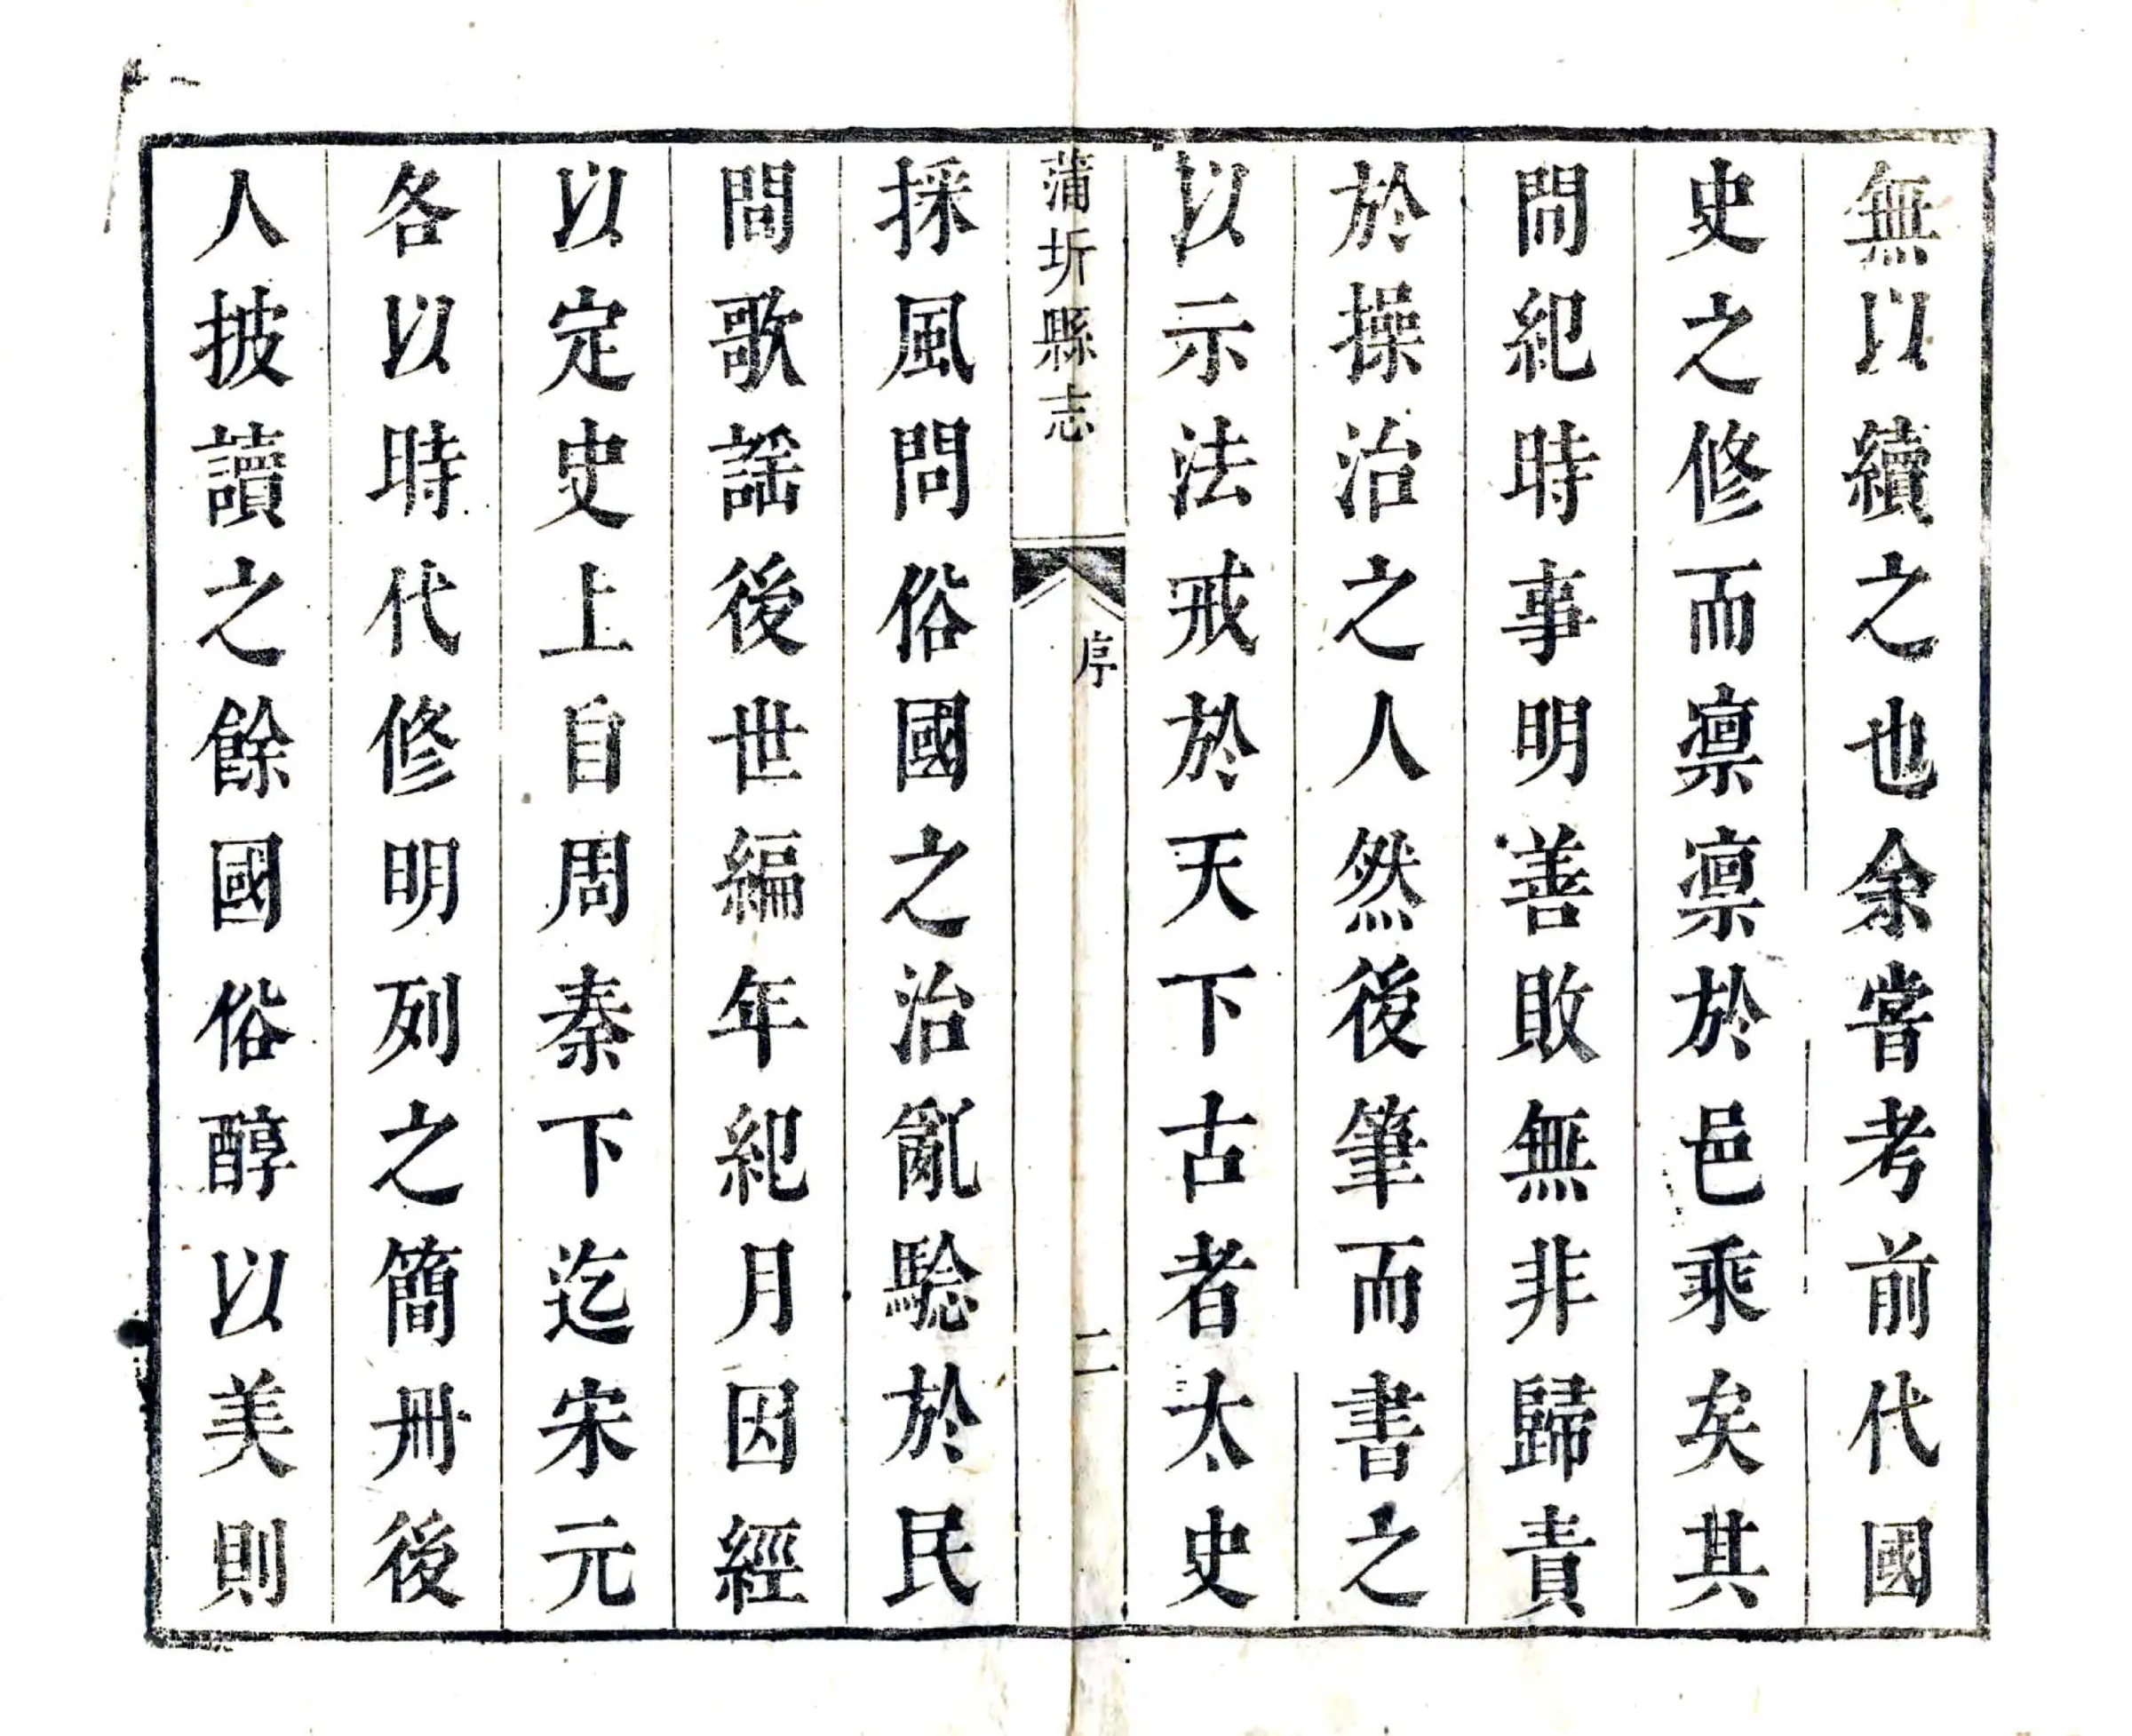 無以續之也余嘗考前代國
史之修而凛凛於邑乘矣其
間紀時事明善敗無非歸責
於操治之人然後筆而書之
以示法戒於天下古者太史
蒲圻縣志
序
二
採風問俗國之治亂驗於民
間歌謡後世編年紀月因經
以定史上自周秦下迄宋元
各以時代修明列之簡冊後
人披讀之餘國俗醇以美則